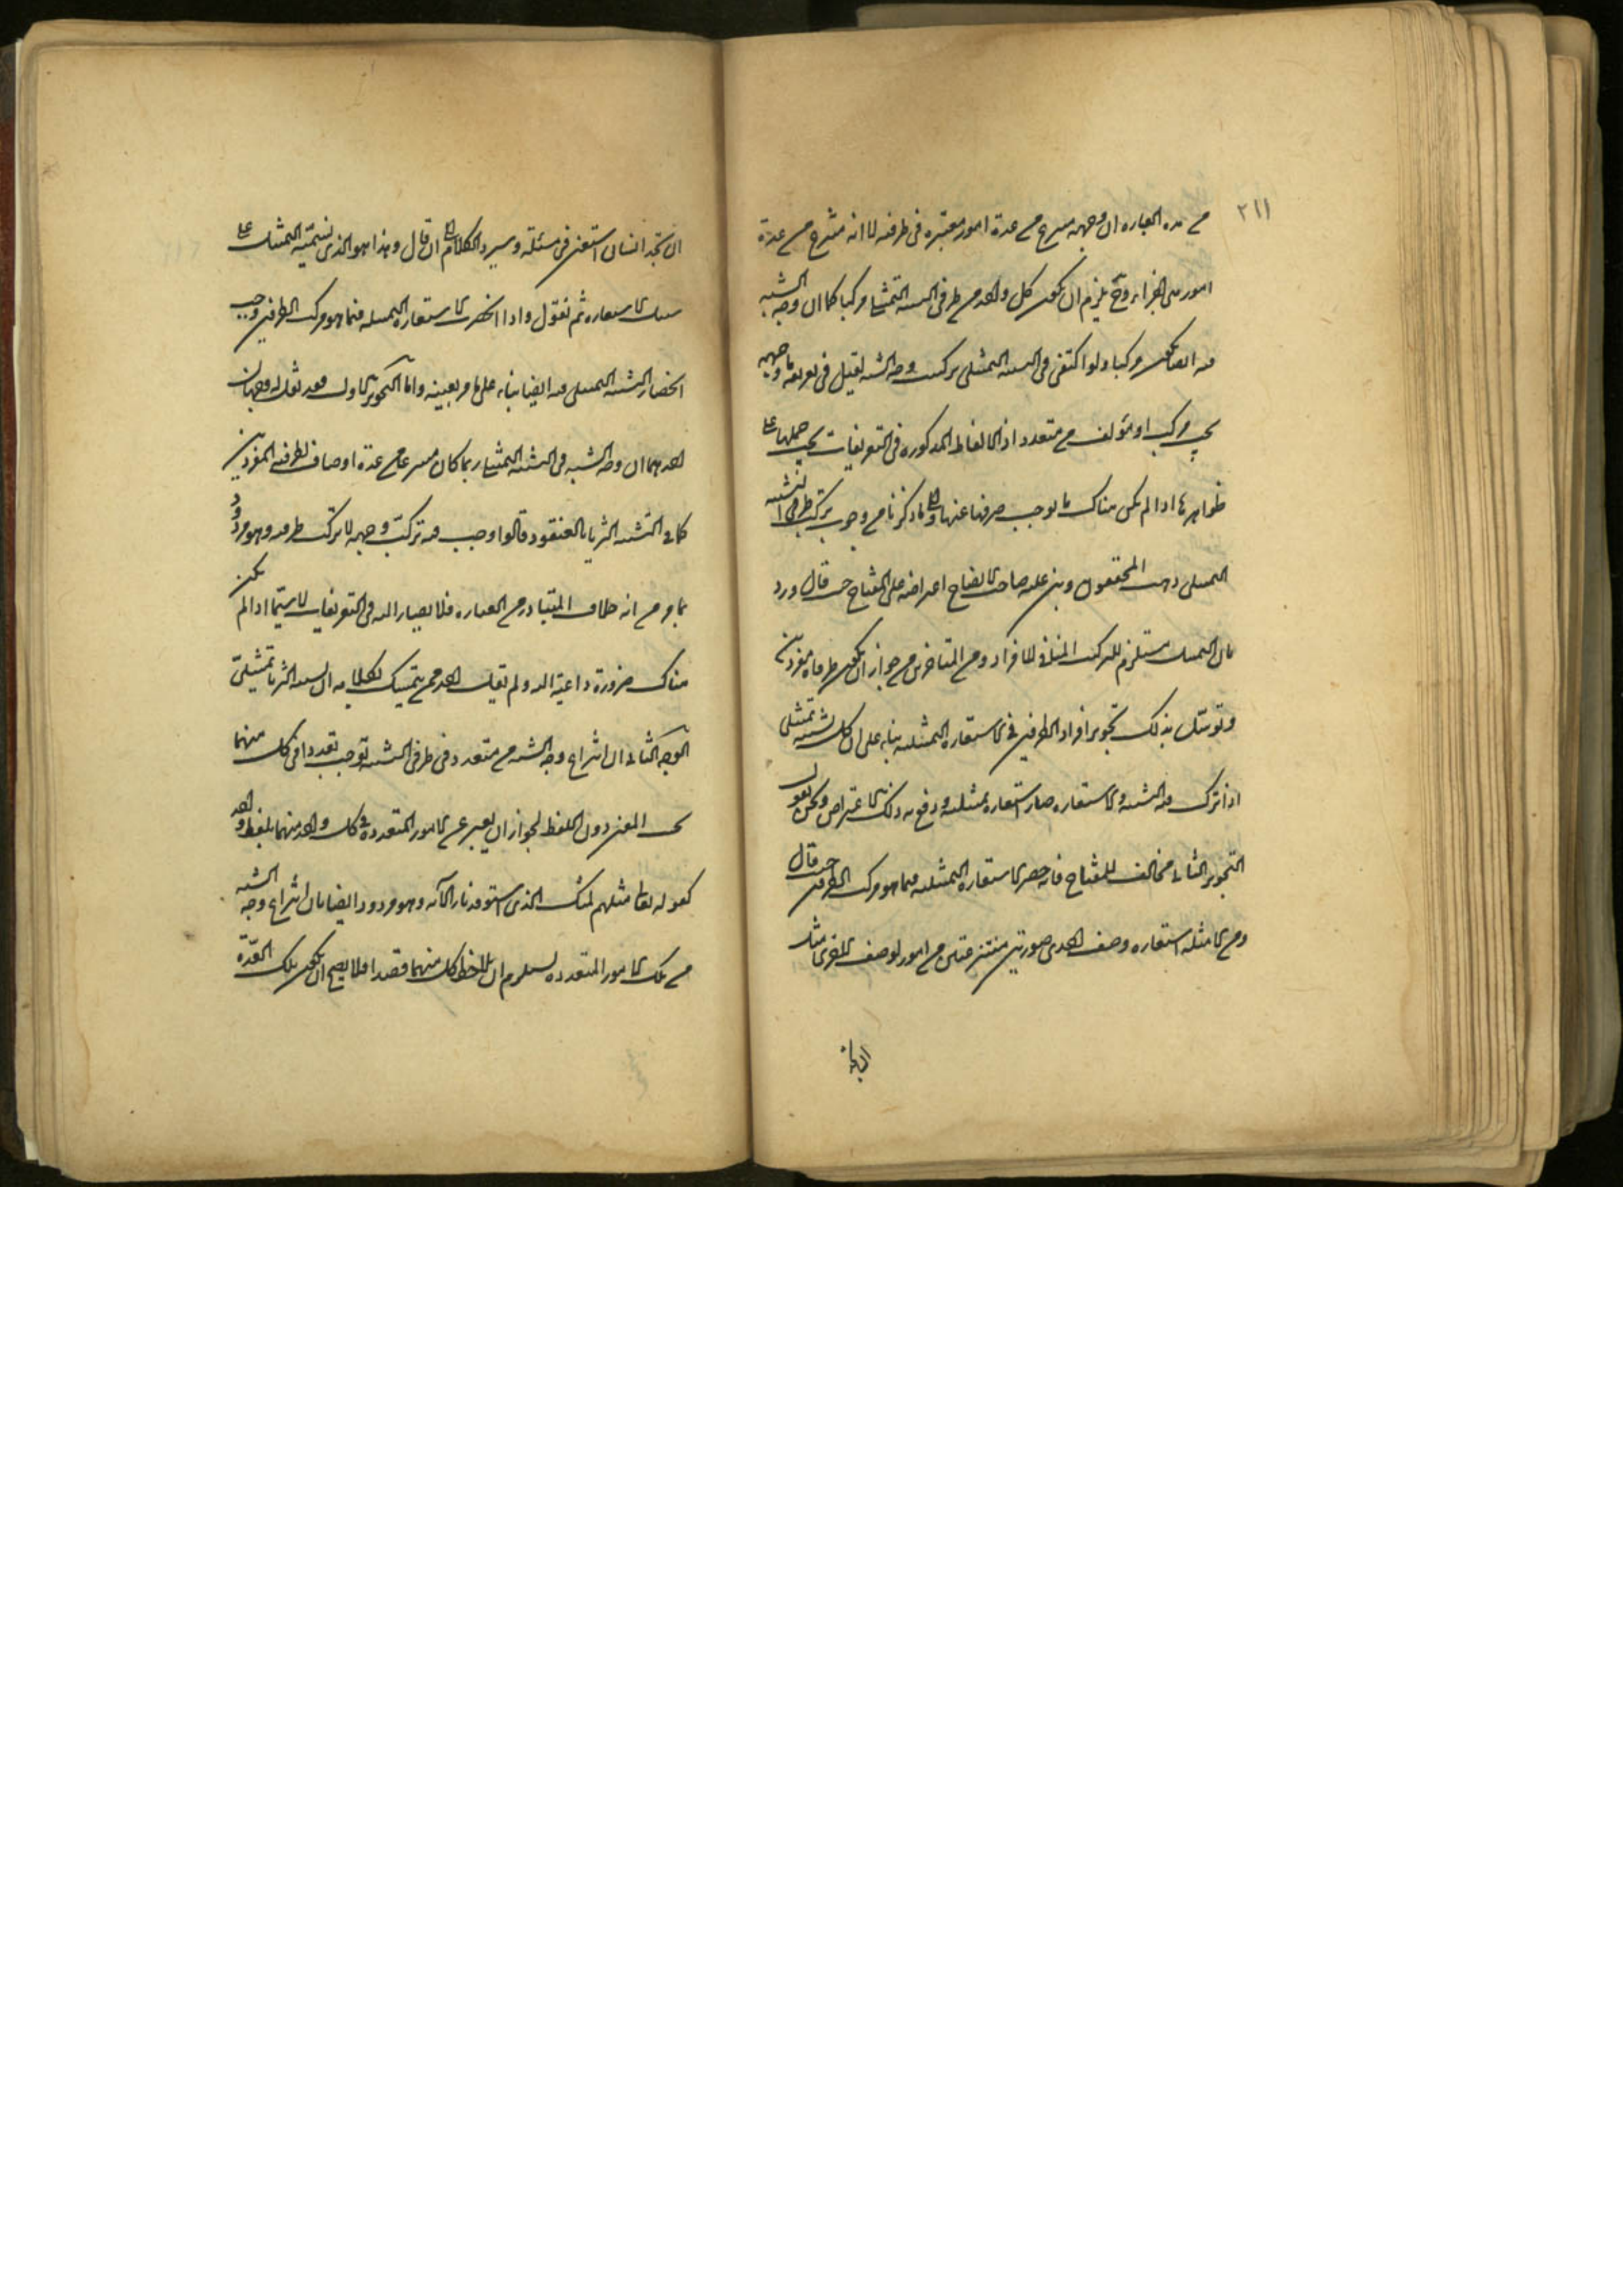 ٢١١
من هذه العباره ان وجهه منتزع من عدة امور معتبره فى طرفيه لا انه منتزع من عدة
امور هى اجزاءه وح يلزم ان يكون كل واحد من طرفى التشبيه التمثيلى مركبا كما ان وجه الشبه
فيه ايضا يكون مركبا ولو اكتفى فى التشبيه التمثيلى بتركيب وجه الشبه لقيل فى تعريفه ما وجهه
مركب او مؤلف من متعدد اذ الالفاظ المذكوره فى التعريفات يجب حملها على
ظواهرها اذا لم يكن هناك ما يوجب صرفها عنها والى ما ذكرنا من وجوب تركب طرفى التشبيه
التمثيلى ذهب المحققون وبنى عليه صاحب الايضاح اعتراضه على المفتاح حيث قال ورد
بان التمثيل مستلزم للتركيب المنافى للافراد ومن المتاخرين من جواز ان يكون طرفاه مفردين
وتوسل بذلك تجويز افراد الطرفين فى الاستعاره التمثيليه بناء على ان كل تشبيه تمثيلى
اذا ترك فيه التشبيه والاستعاره صار استعاره تمثيليه ودفع به ذلك الاعتراض ونحن نقول
التجويز الثانى مخالف للمفتاح فانه حصر الاستعاره التمثيليه فيما هو مركب الطرفين حيث قال
ومن الامثله استعاره وصف احدى صورتين منتزعتين من امور لوصف الاخرى مثل
ان تجد انسانا استفتى فى مسئلة وسرد الكلام الى ان قال وهذا هو الذى نسميه التمثيل على
سبيل الاستعاره ثم نقول واذا انحصرت الاستعاره التمثيليه فيما هو مركب الطرفين وجب
انحصار التشبيه التمثيلى فيه ايضا بناء على ما مر بعينه واما التجويز الاول فقد نقل له وجهان
احدهما ان وجه الشبه فى التشبيه التمثيلى ربما كان منتزعا من عدة اوصاف لطرفيه المفردين
كما فى التشبيه الثريا بالعنقود قالوا وجب فيه تركب وجهه لا تركب طرفيه وهو مردود
بما مر من انه خلاف المتبادر من العباره فلا يصار اليه فى التعريفات لا سيما اذا لم يكن
هناك ضرورة داعية اليه ولم يقل احد ممن يتمسك بكلامه ان تشبيه الثريا تمثيلى
الوجه الثانى ان انتزاع وجه الشبه من متعدد فى طرفى التشبيه يوجب تعددا فى كل منهما
بحسب المعنى دون اللفظ لجواز ان يعبر عن الامور المتعدده فى كل واحد منهما بلفظ واحد
كقوله تعالى مثلهم كمثل الذى استوقد نارا الآيه وهو مردود ايضا بان انتزاع وجه الشبه
من تلك الامور المتعدده يستلزم ان يلاحظ كل منهما قصدا فلا يصح ان يكون تلك العدة